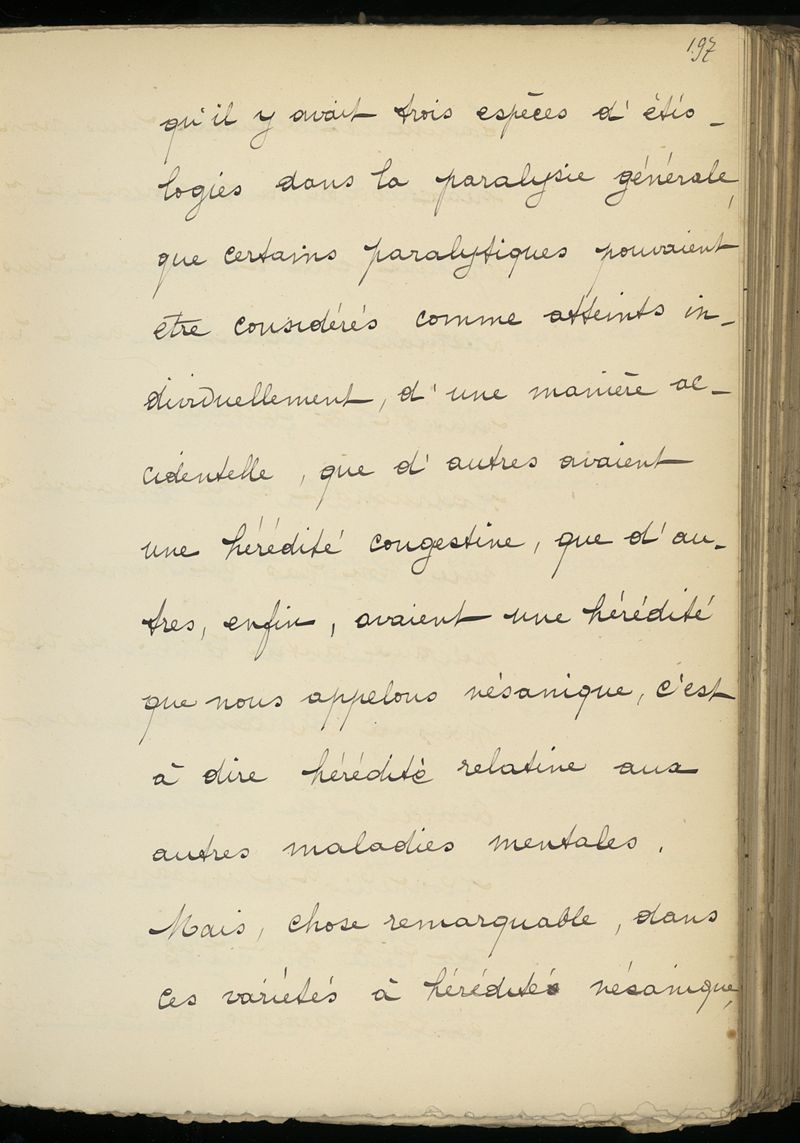 197
qu'il y avait trois espèces d'étio-
logies dans la paralysie générale,
que certains paralytiques pouvaient
être considérés comme atteints in-
dividuellement, d'une manière ac-
cidentelle, que d'autres avaient
une hérédité congestive, que d'au-
tres, enfin, avaient une hérédité
que nous appelons vésanique, c'est
à dire hérédité relative aux
autres maladies mentales.
Mais, chose remarquable, dans
ces variétés à hérédités vésanique,